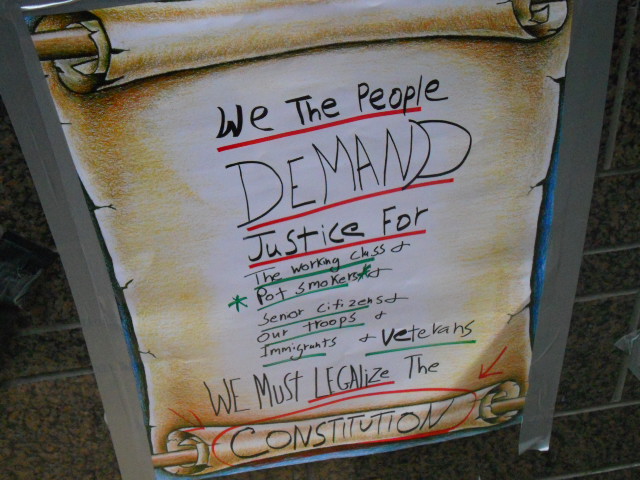 We The People
DEMAND
Justice For
The working class &
* Pot smokers* &
Senior Citizens &
Our troops &
Immigrants & veterans
WE MusT LEGAlize The
CONSTITUTION